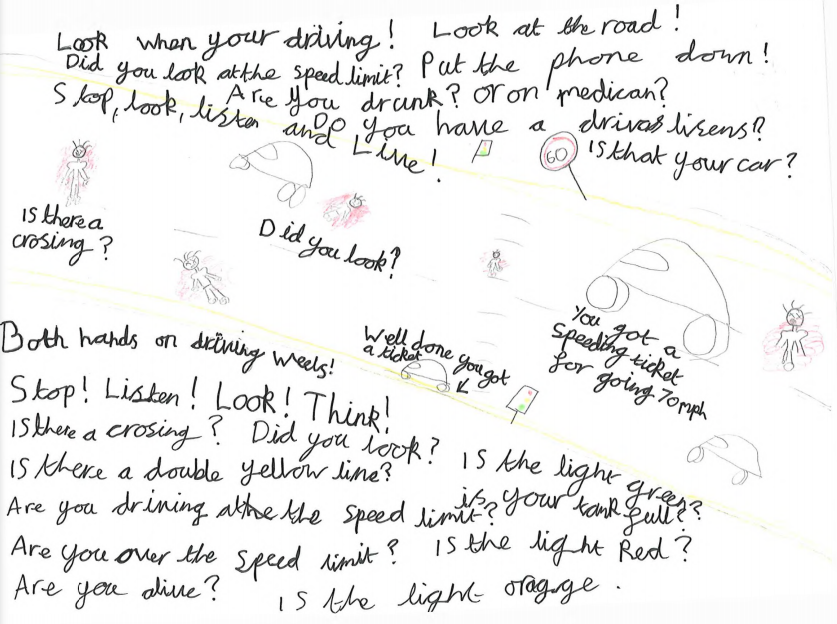 Look when your driving! Look at the road!
Did you look at the speed limit? Put the phone down!
Are you drunk? or on medican?
Stop, look, listen and Live!
Do you have a drivas lisens?
Is that your car?
60
Is there a
crosing?
Did you look?
You got a
speeding ticket
for going 70mph
Well done you got
a ticket
Both hands on driving weels!
Stop! Listen! Look! Think!
Is there a crosing? Did you look?
Is the light green?
Is there a double yellow line?
is your tank full?
Are you drining athe the speed limit?
Are you over the speed limit? Is the light Red?
Are you alive? Is the light oragge.